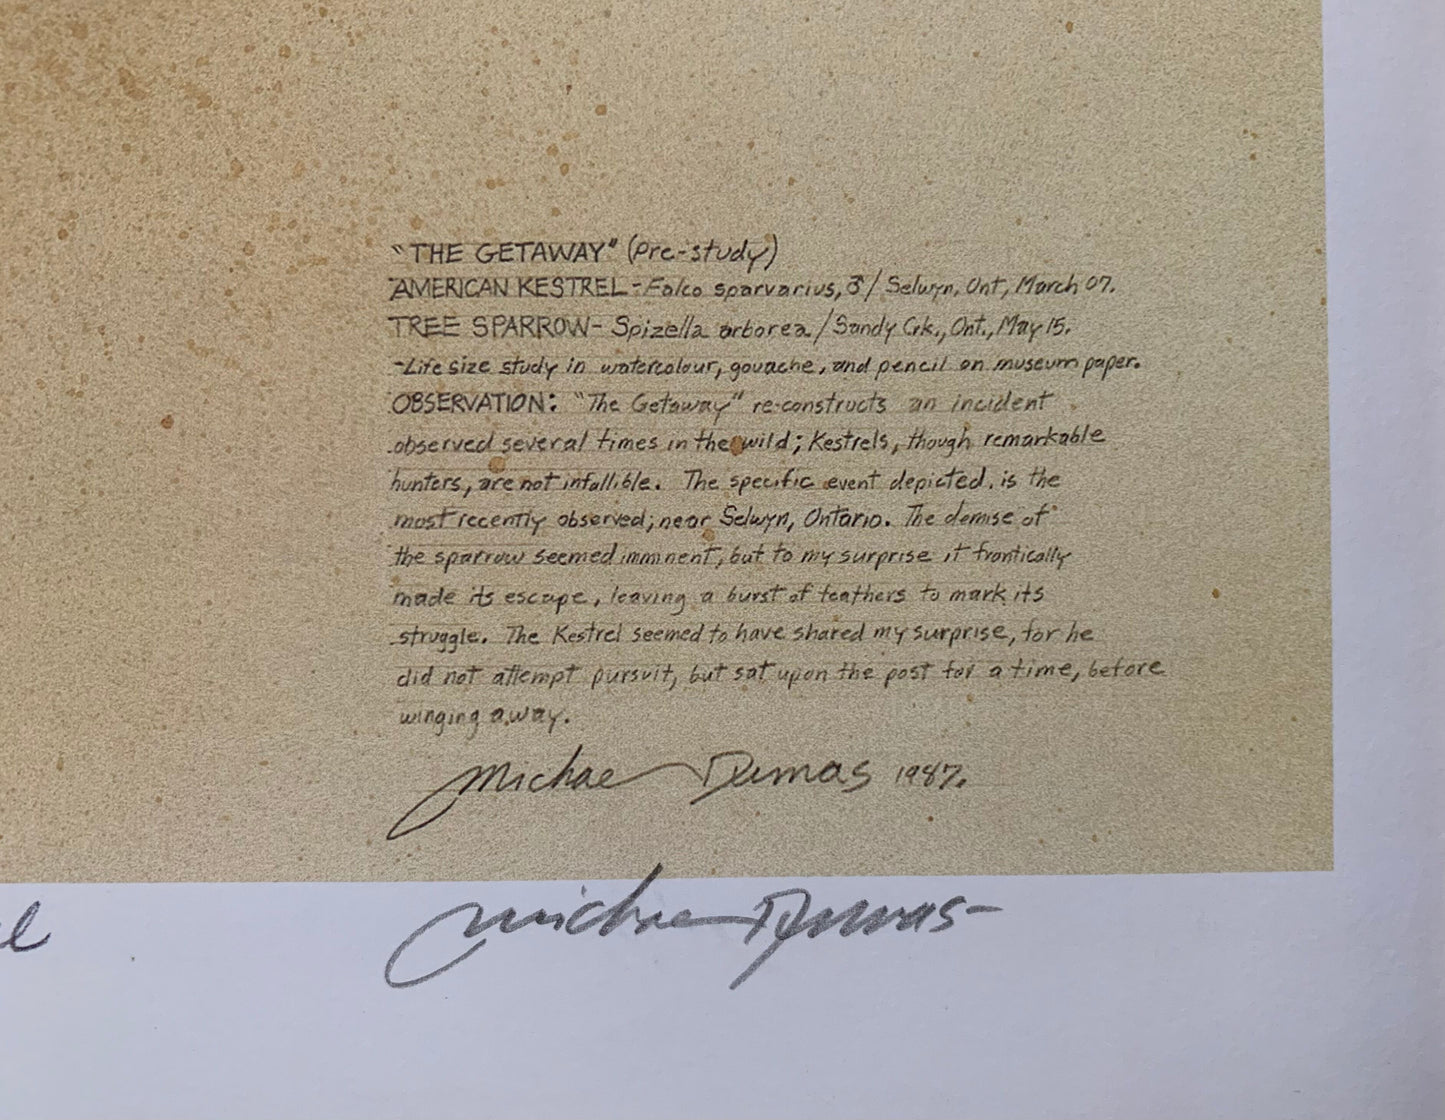 "THE GETAWAY" (Pre-study)
AMERICAN KESTREL - Falco sparvarius, ♂ / Selwyn, Ont, March 07.
TREE SPARROW - Spizella arborea / Sandy Crk., Ont., May 15.
-Life size study in watercolour, gouache, and pencil on museum paper.
OBSERVATION: "The Getaway" re-constructs an incident
observed several times in the wild; Kestrels, though remarkable
hunters, are not infallible. The specific event depicted, is the
most recently observed; near Selwyn, Ontario. The demise of
the sparrow seemed imminent, but to my surprise it frantically
made its escape, leaving a burst of feathers to mark its
struggle. The Kestrel seemed to have shared my surprise, for he
did not attempt pursuit, but sat upon the post for a time, before
winging away.
Michael Dumas 1987.
Michael Dumas